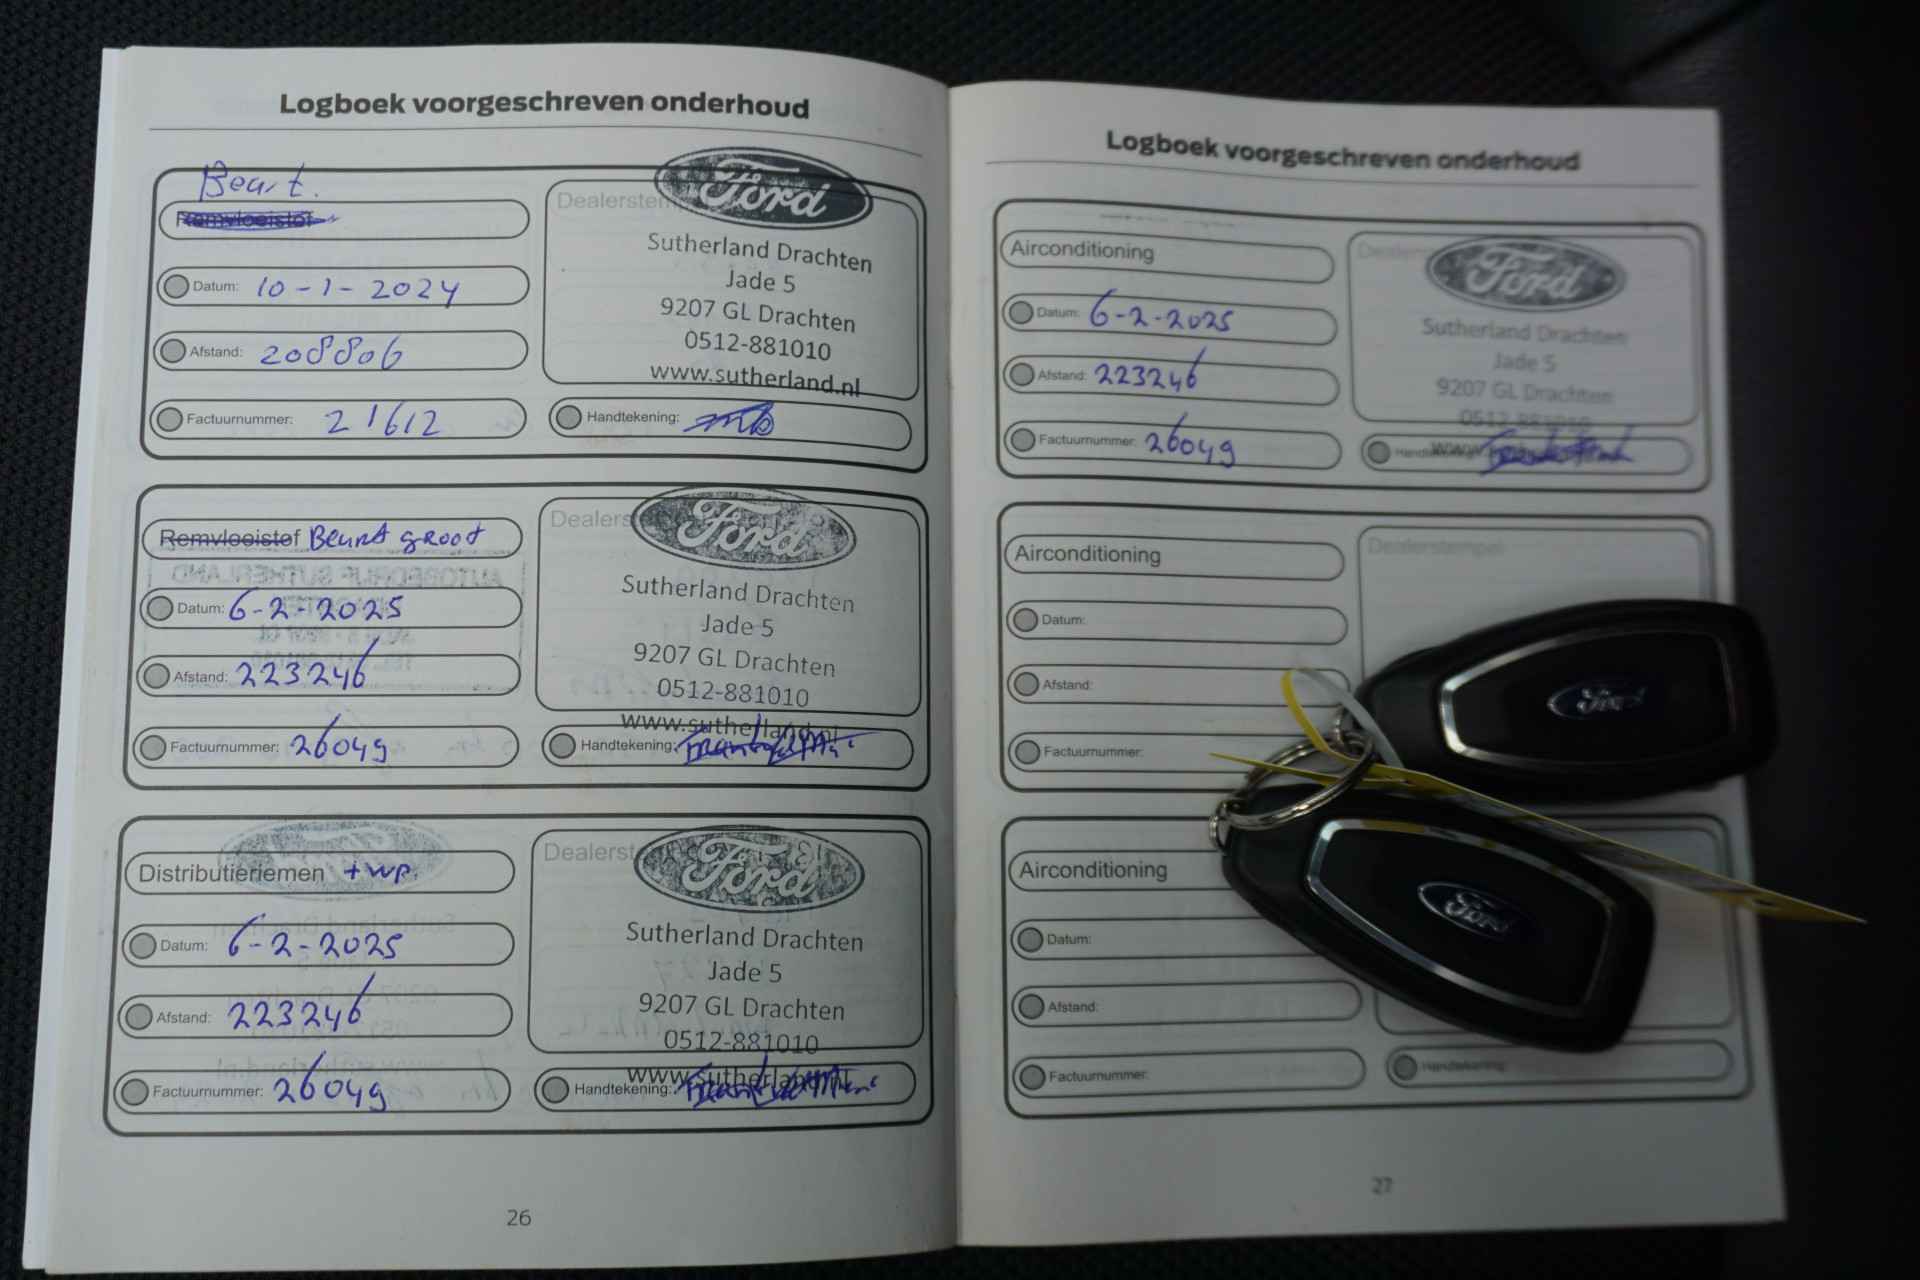 Logboek voorgeschreven onderhoud
Beurt.
Remvloeistof
Datum: 10-1-2024
Afstand: 208806
Factuurnummer: 21612
Dealerstem
Ford
Sutherland Drachten
Jade 5
9207 GL Drachten
0512-881010
www.sutherland.nl
Handtekening:
Remvloeistof Beurt groot
Datum: 6-2-2025
Afstand: 223246
Factuurnummer: 26049
Dealers
Ford
Sutherland Drachten
Jade 5
9207 GL Drachten
0512-881010
www.sutherland.nl
Handtekening:
Distributieriemen + wp.
Datum: 6-2-2025
Afstand: 223246
Factuurnummer: 26049
Dealerst
Ford
Sutherland Drachten
Jade 5
9207 GL Drachten
0512-881010
www.sutherland.nl
Handtekening:
26
Logboek voorgeschreven onderhoud
Airconditioning
Datum: 6-2-2025
Afstand: 223246
Factuurnummer: 26049
Ford
Sutherland Drachten
Jade 5
9207 GL Drachten
0512-881010
Airconditioning
Datum:
Afstand:
Factuurnummer:
Dealerstempel
Airconditioning
Datum:
Afstand:
Factuurnummer:
Handtekening:
27
Ford
Ford